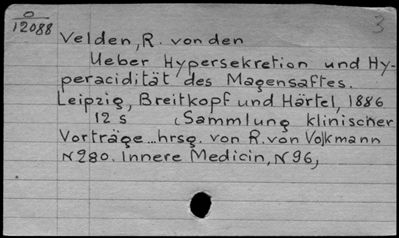 O
12088
3
Velden, R. von den
Ueber Hypersekretion und Hy-
peracidität des Magensaftes.
Leipzig, Breitkopf und Härtel, 1886
12 s (Sammlung klinischer
Vorträge ... hrsg. von R. von Volkmann
N 280. Innere Medicin, N 96,